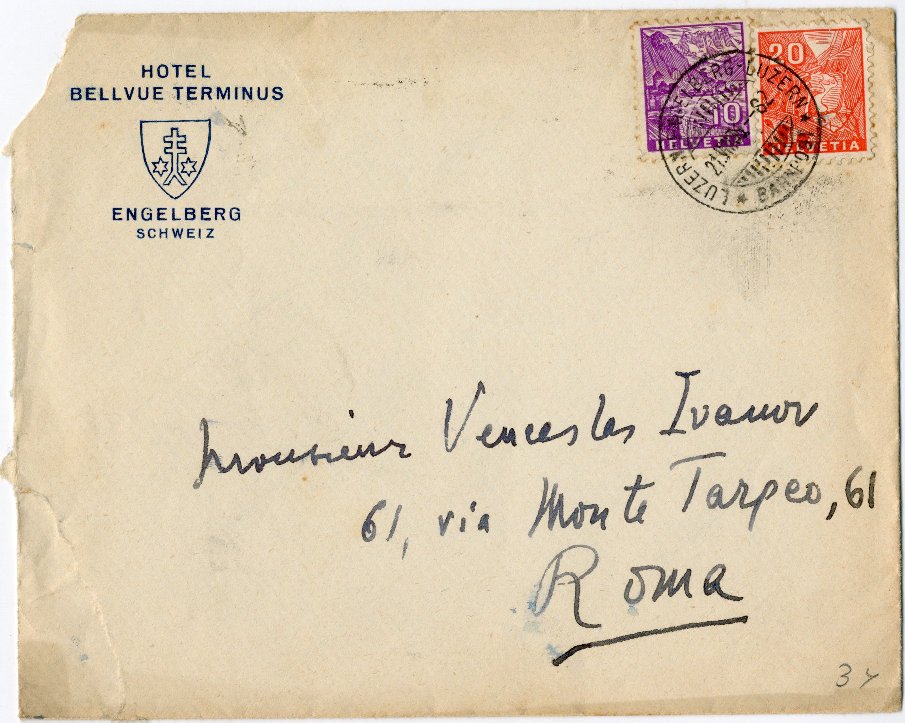 HOTEL
BELLVUE TERMINUS
ENGELBERG
SCHWEIZ
10
HELVETIA
20
HELVETIA
LUZERN-ENGELBERG-LUZERN
* BAHNPOST *
Monsieur Venceslas Ivanov
61, via Monte Tarpeo, 61
Roma
34